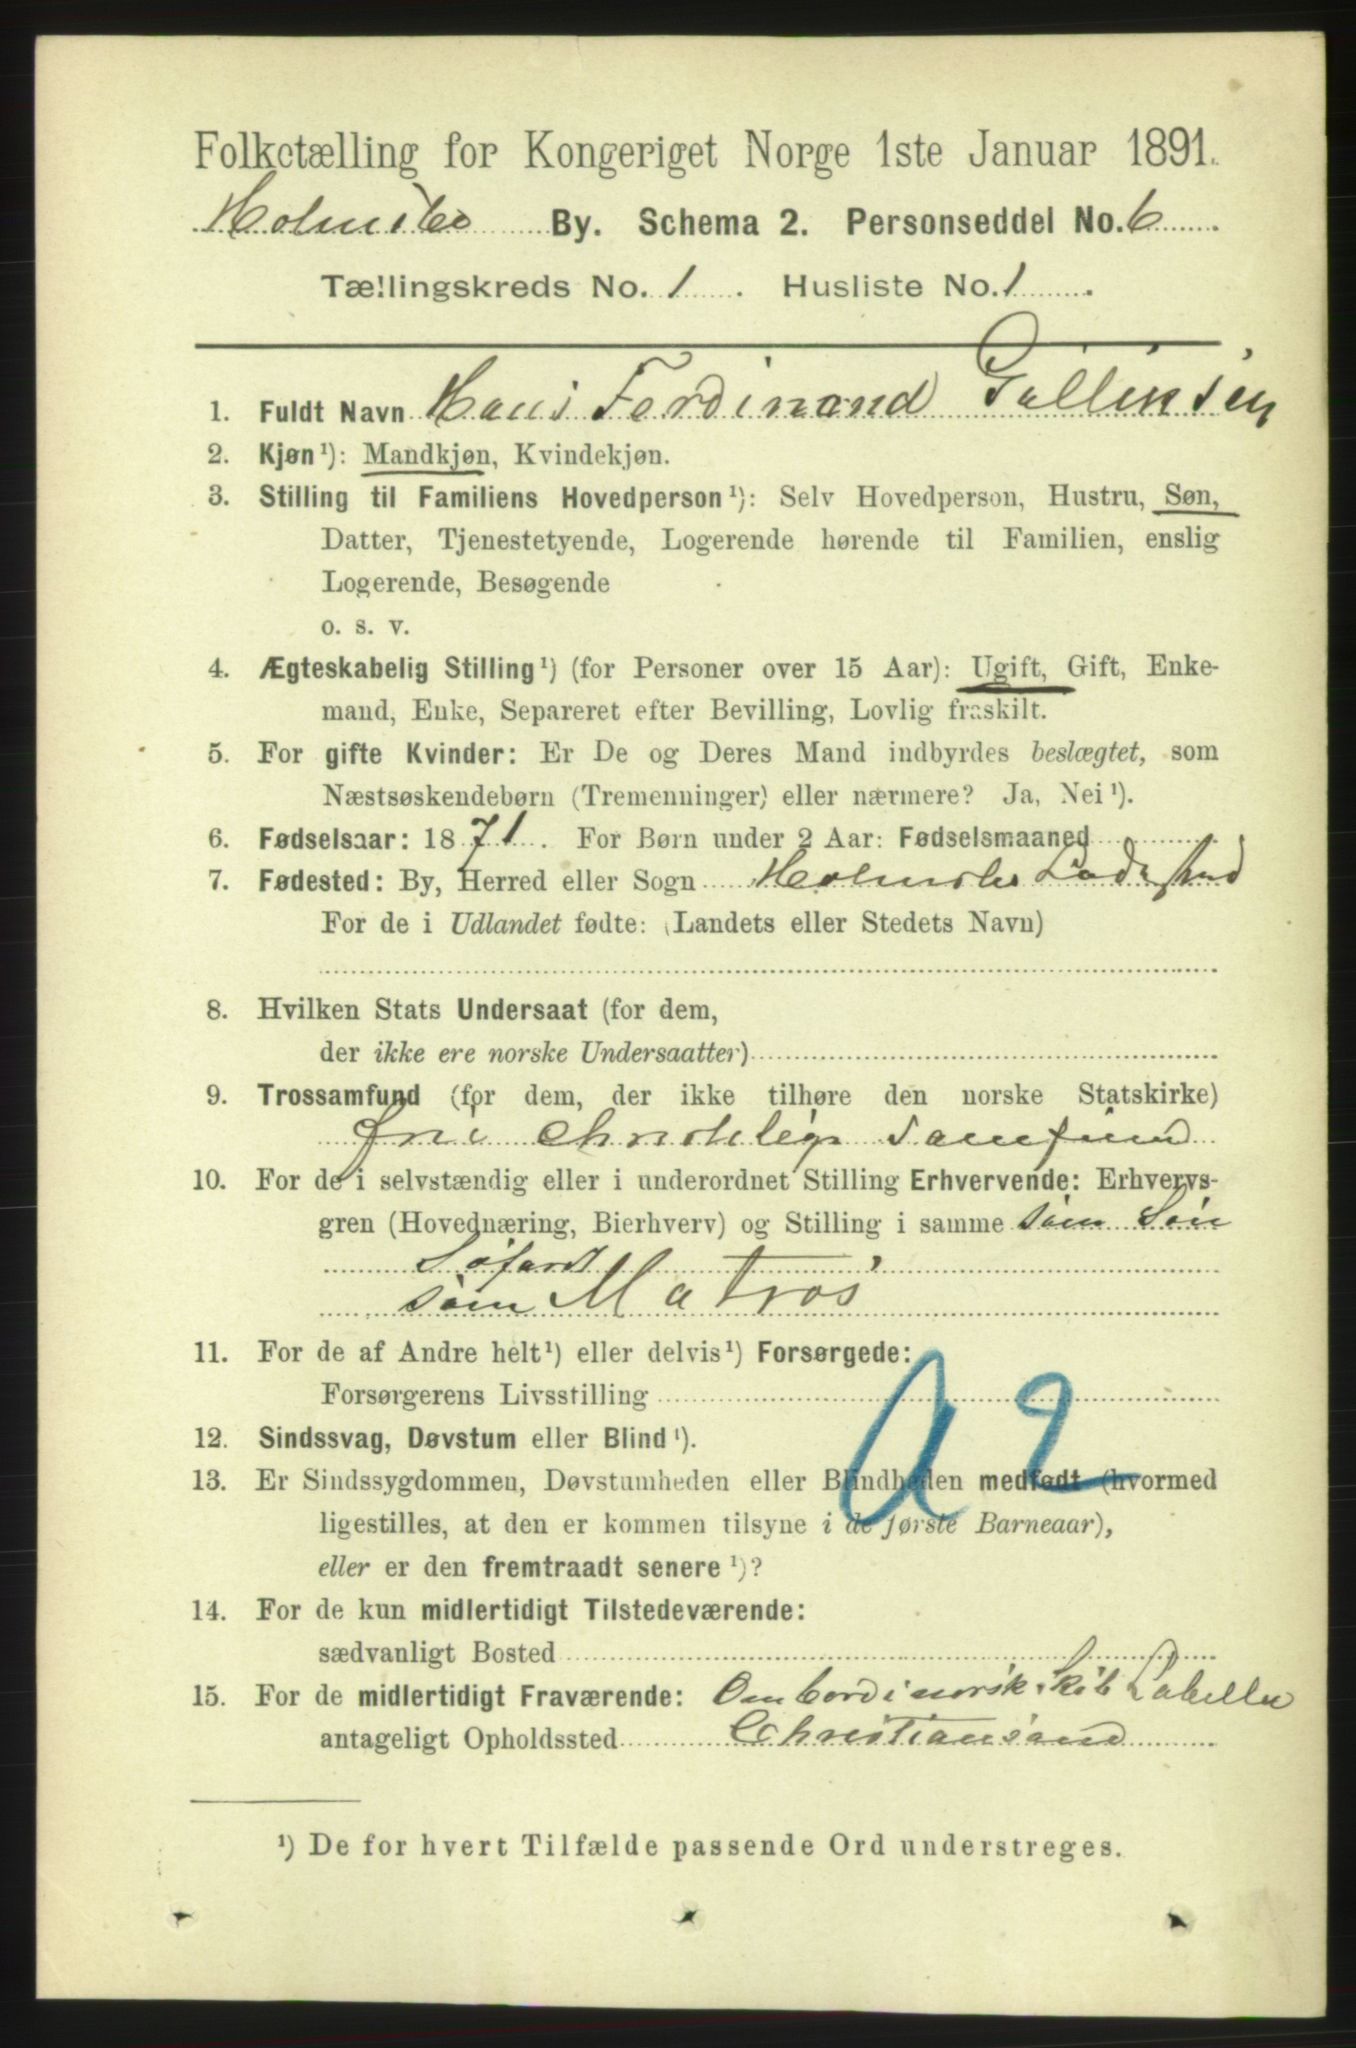 Folketælling for Kongeriget Norge 1ste Januar 1891.
Holmsbo By. Schema 2. Personseddel No. 6
Tællingskreds No. 1. Husliste No. 1.
1. Fuldt Navn Hans Ferdinand Gullinsen
2. Kjøn¹): Mandkjøn, Kvindekjøn.
3. Stilling til Familiens Hovedperson¹): Selv Hovedperson, Hustru, Søn,
Datter, Tjenestetyende, Logerende hørende til Familien, enslig
Logerende, Besøgende
o. s. v.
4. Ægteskabelig Stilling¹) (for Personer over 15 Aar): Ugift, Gift, Enke-
mand, Enke, Separeret efter Bevilling, Lovlig fraskilt.
5. For gifte Kvinder: Er De og Deres Mand indbyrdes beslægtet, som
Næstsøskendebørn (Tremenninger) eller nærmere? Ja, Nei¹).
6. Fødselsaar: 1871. For Børn under 2 Aar: Fødselsmaaned
7. Fødested: By, Herred eller Sogn Holmsbo Ladested
For de i Udlandet fødte: (Landets eller Stedets Navn)
8. Hvilken Stats Undersaat (for dem,
der ikke ere norske Undersaatter)
9. Trossamfund (for dem, der ikke tilhøre den norske Statskirke)
Fri Christelige Samfund
10. For de i selvstændig eller i underordnet Stilling Erhvervende: Erhvervs-
gren (Hovednæring, Bierhverv) og Stilling i samme som Søn
Søfart
som Matros
11. For de af Andre helt¹) eller delvis¹) Forsørgede:
Forsørgerens Livsstilling
A 2
12. Sindssvag, Døvstum eller Blind¹).
13. Er Sindssygdommen, Døvstumheden eller Blindheden medfødt (hvormed
ligestilles, at den er kommen tilsyne i de første Barneaar),
eller er den fremtraadt senere¹)?
14. For de kun midlertidigt Tilstedeværende:
sædvanligt Bosted
15. For de midlertidigt Fraværende: Ombord i norsk Skib Labella
antageligt Opholdssted Christiansand
¹) De for hvert Tilfælde passende Ord understreges.